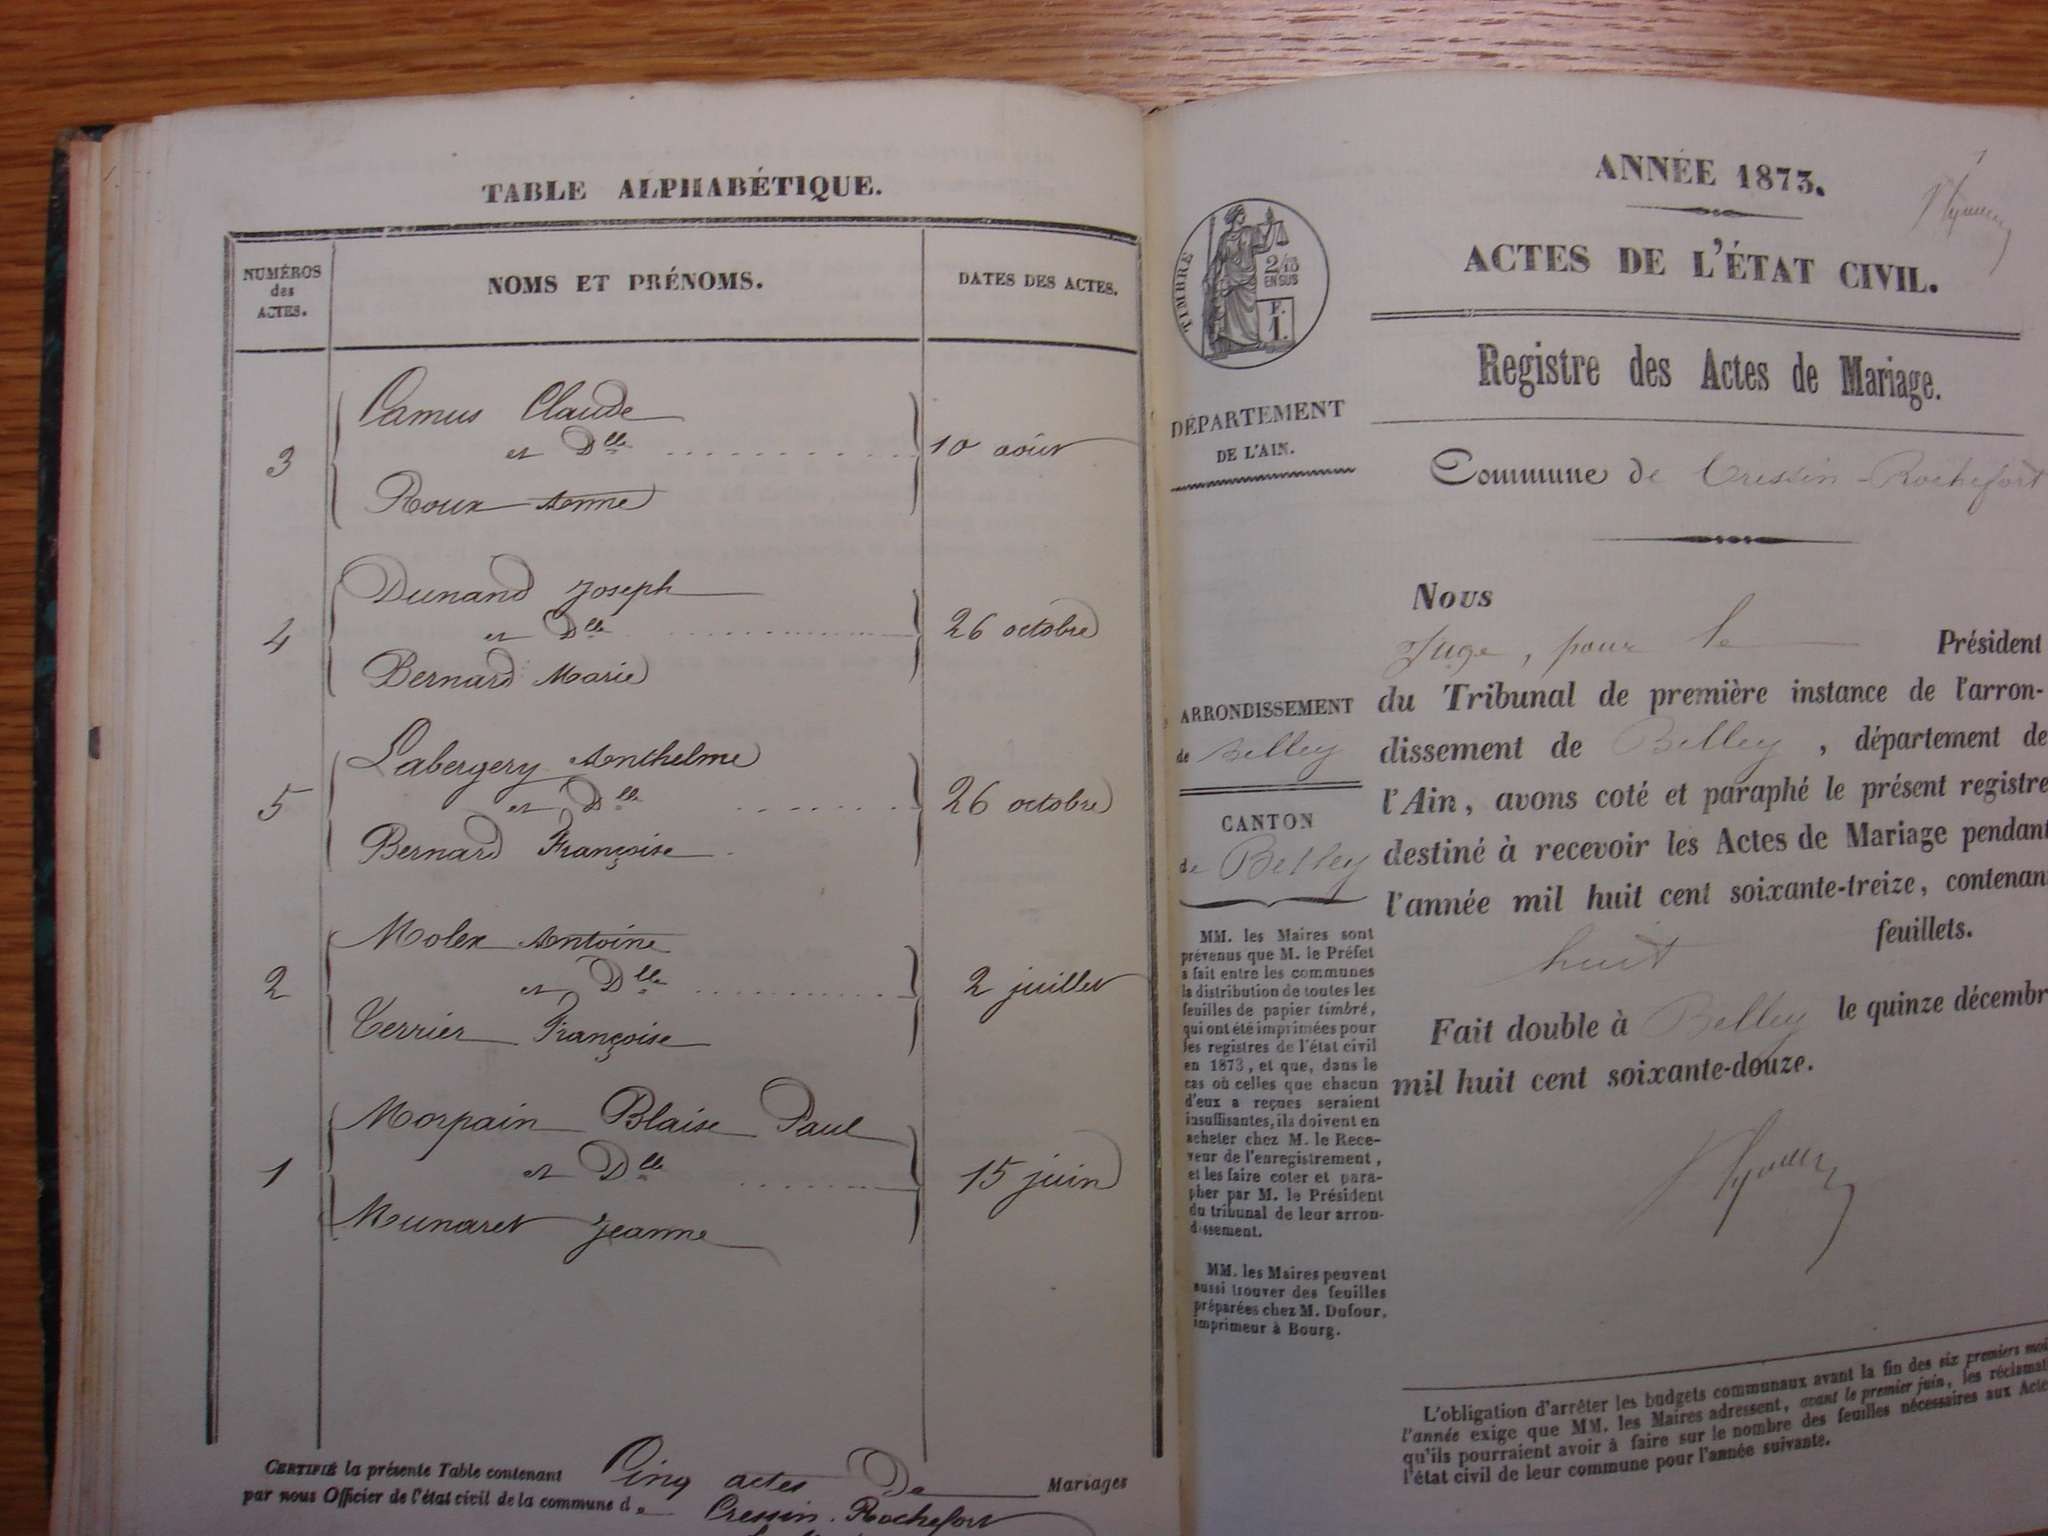 TABLE ALPHABÉTIQUE.
NUMÉROS
des
ACTES.
NOMS ET PRÉNOMS.
DATES DES ACTES.
Camus Claude
3 et Dlle 10 août
Roux Anne
Dunand Joseph
4 et Dlle 26 octobre
Bernard Marie
Labergery Anthelme
5 et Dlle 26 octobre
Bernard Françoise
Molex Antoine
2 et Dlle 2 juillet
Terrier Françoise
Morpain Blaise Paul
1 et Dlle 15 juin
Munaret Jeanne
CERTIFIÉ la présente Table contenant Cinq actes De Mariages
par nous Officier de l'état civil de la commune de Cressin-Rochefort
ANNÉE 1873.
ACTES DE L'ÉTAT CIVIL.
Registre des Actes de Mariage.
TIMBRE
2/10
EN SUS
F.
1.
DÉPARTEMENT
DE L'AIN.
Commune de Cressin-Rochefort
Nous
Juge, pour le Président
du Tribunal de première instance de l'arron-
dissement de Belley, département de
l'Ain, avons coté et paraphé le présent registre
destiné à recevoir les Actes de Mariage pendant
l'année mil huit cent soixante-treize, contenant
huit feuillets.
Fait double à Belley le quinze décembr
mil huit cent soixante-douze.
ARRONDISSEMENT
de Belley
CANTON
de Belley
MM. les Maires sont
prévenus que M. le Préfet
a fait entre les communes
la distribution de toutes les
feuilles de papier timbré,
qui ont été imprimées pour
les registres de l'état civil
en 1873, et que, dans le
cas où celles que chacun
d'eux a reçues seraient
insuffisantes, ils doivent en
acheter chez M. le Rece-
veur de l'enregistrement,
et les faire coter et para-
pher par M. le Président
du tribunal de leur arron-
dissement.
MM. les Maires peuvent
aussi trouver des feuilles
préparées chez M. Dufour,
imprimeur à Bourg.
L'obligation d'arrêter les budgets communaux avant la fin des six premiers moi
l'année exige que MM. les Maires adressent, avant le premier juin, les réclamat
qu'ils pourraient avoir à faire sur le nombre des feuilles nécessaires aux Acte
l'état civil de leur commune pour l'année suivante.